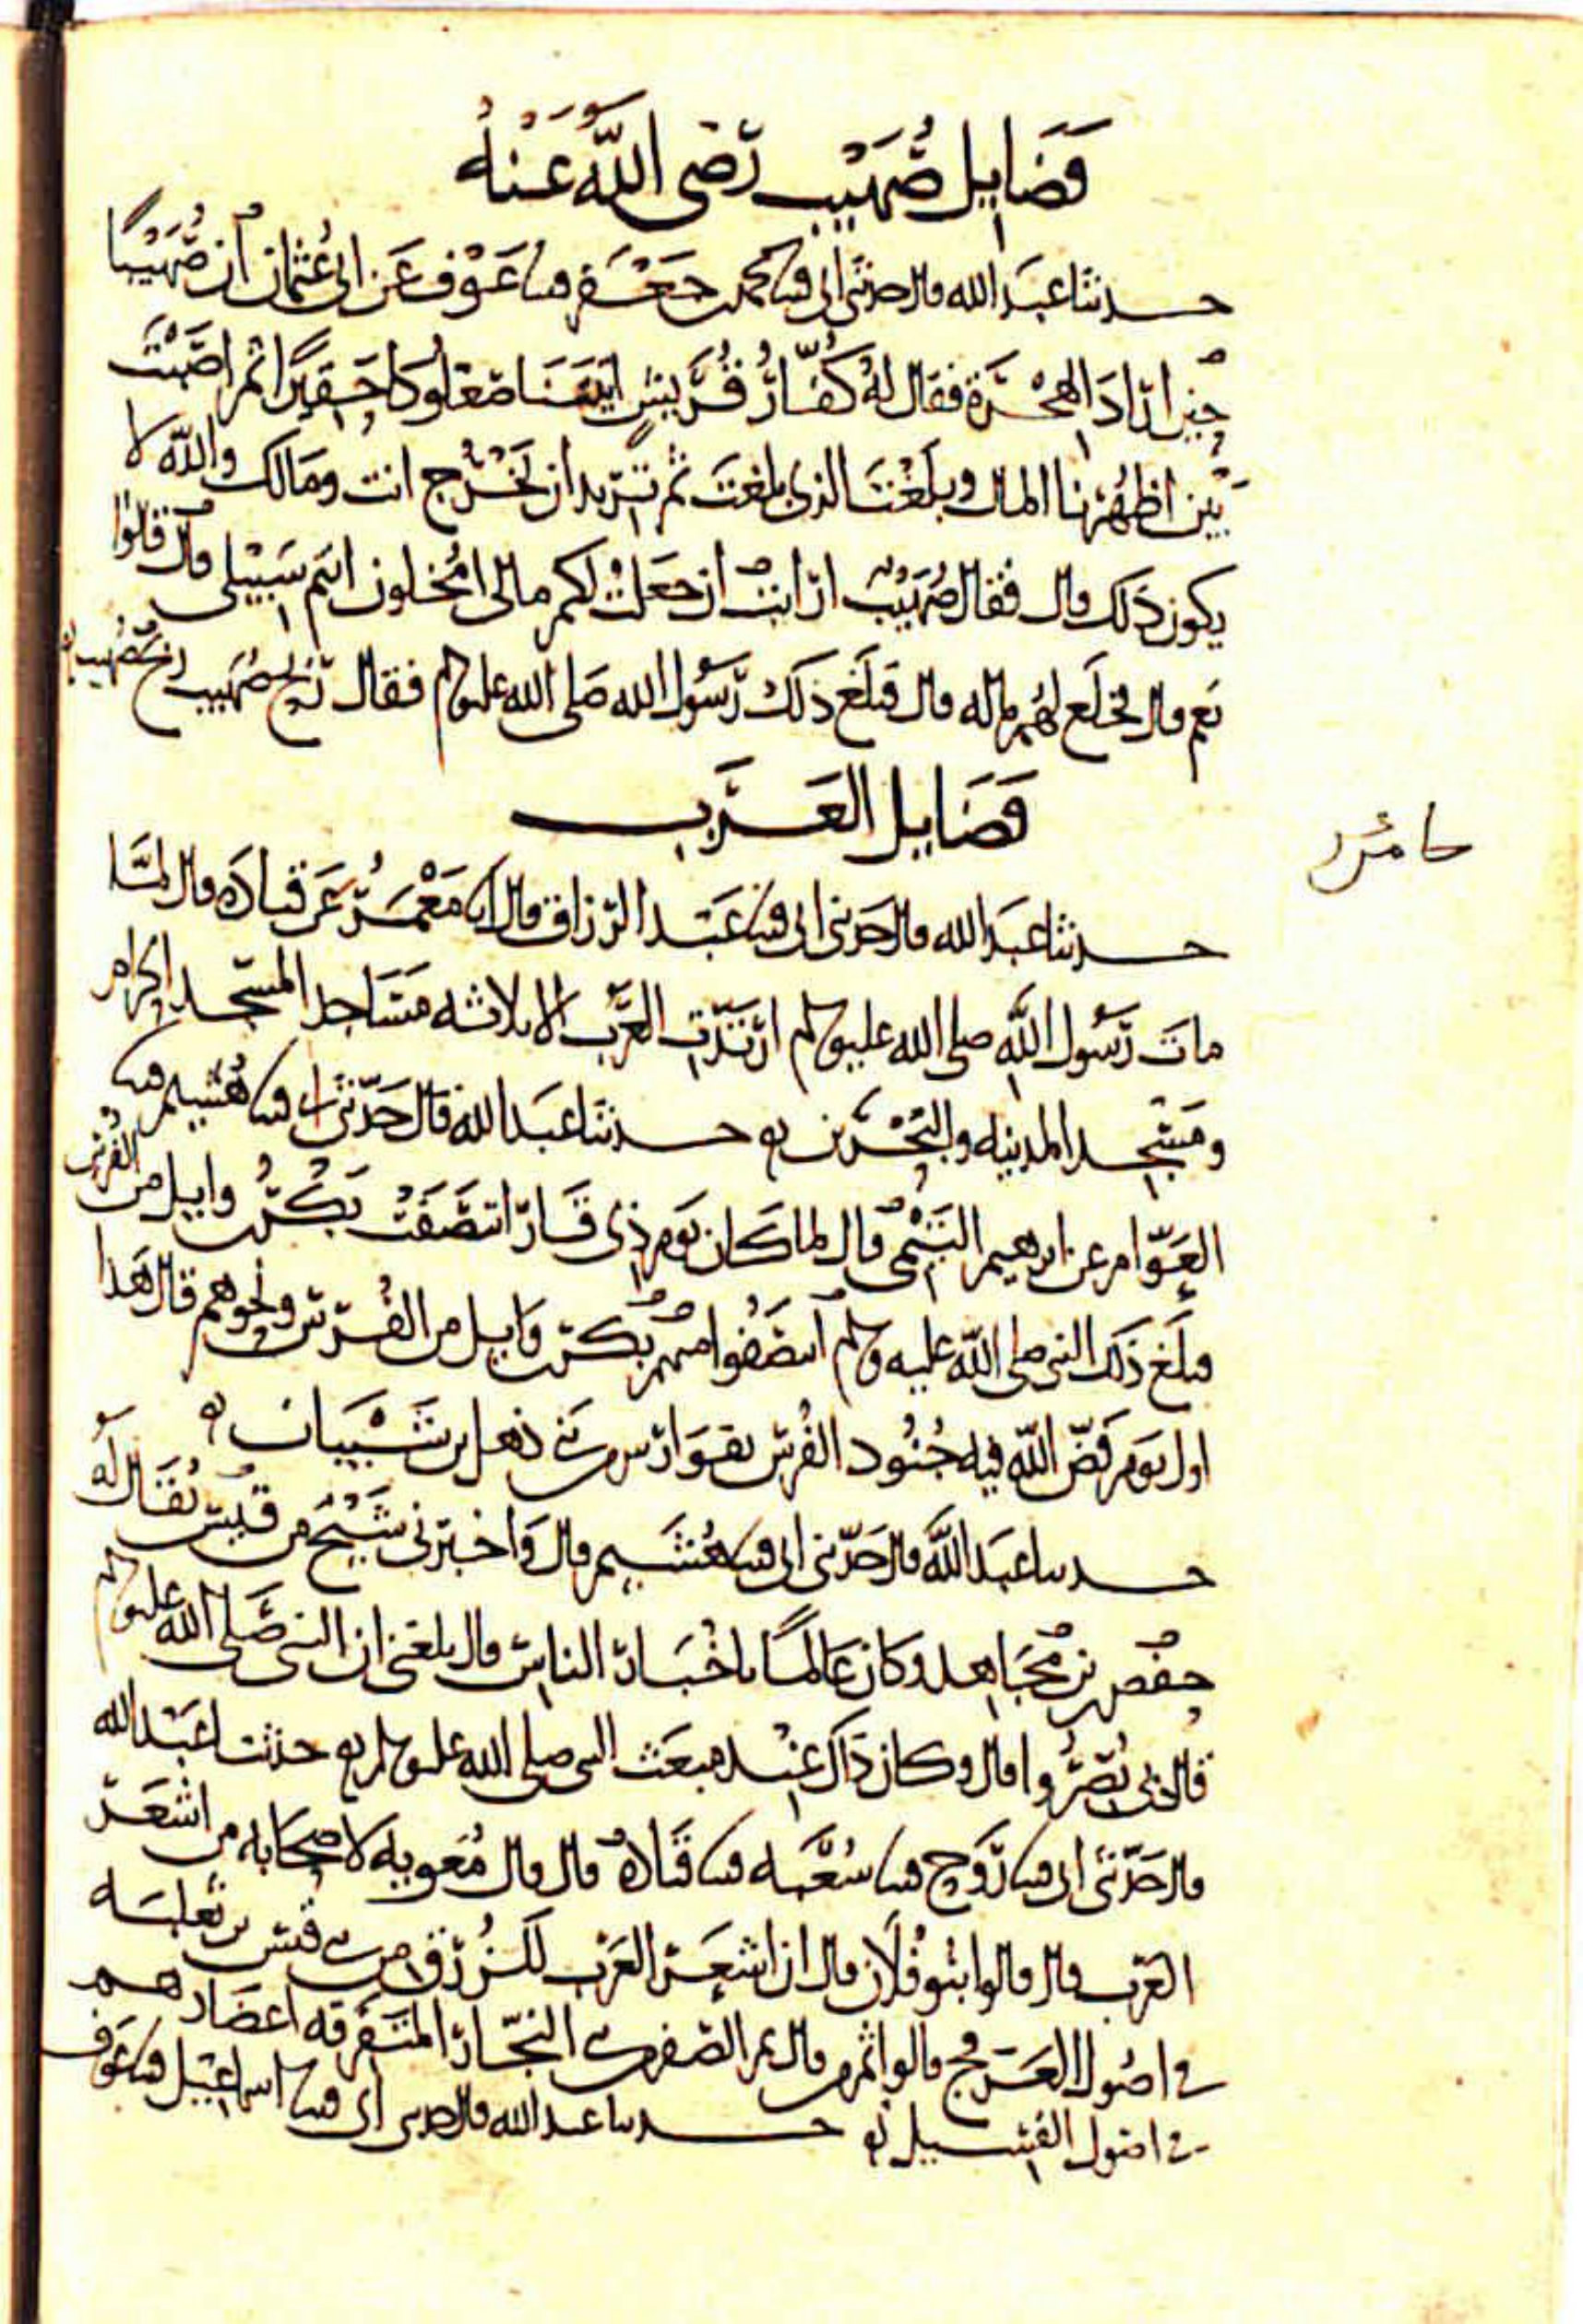 فَضَايل صُهَيْب رَضى اللَّهُ عَنْهُ
حدثنا عبد الله قال حدثني ابى قثنا محمد بن جعفر قثنا عَوْف عَن ابى عُثمان ان صُهَيْبًا
حين اراد الهجرة فقال له كُفّارُ قُرَيش اتيتَنَا صُعْلُوكا حَقِيرًا ثم اصَبْتَ
بَيْن اظهُرنا المال وبلَغْتَ الذى بلغتَ ثم تريد ان تَخْرُج انت ومَالك والله لا
يكون ذلك قال فقال صُهَيْبٌ ارايتم ان جعَلتُ لكم مالى امُخلون انتم سَبِيْلى قال قالوا
نعم قال فخلَع لهُم ماله قال فبلَغ ذلك رَسُول الله صَلى الله عليه وسلم فقال رَبح صُهَيب رَبح صُهَيب
فَضَايل العَرَب
حدثنا عبد الله قال حدثني ابى قثنا عَبْد الرزاق قال انا مَعْمَرٌ عن قتادَه قال لمَّا
ماتَ رَسُول اللَّه صلى الله عليه وسلم ارتدَّت العَرَب الا ثلاثه مَسَاجد المسجد الحرام
ومَسْجد المدينه والبَحْرَين حدثنا عبد الله قال حَدّثنى ابى قثنا هُشيم قثنا
العَوّام عن ابرهيم التَيْمى قال لما كان يَوم ذى قَار انتصَفَتْ بَكْرُ بن وايل من الفُرس
فبلَغ ذَلك النبى صلى الله عليه وسلم انتصَفُوا منهم بَكر بن وَايل من الفُرس ونحوهم قال هَذا
اول يَوم فَضّ اللّه فيه جُنُود الفُرس بفَوارس من بنى ذهل بن شَيْبَان
حدثنا عبد اللَّه قال حَدّثنى ابى قثنا هُشَيم قال وَاخبرنى شَيْخ من قيس يُقَال لَه
حفص بن مُجَاهد وكان عَالمًا باخْبَار الناس قال بلغنى ان النبى صَلى الله عليه وسلم
قال بى نُصِرُوا قال وكان ذَاك عِنْد مبعَث النبى صلى الله عليه وسلم حدثنا عَبْد الله
قال حَدّثنى ابى قثنا رَوح قثنا شُعْبَه قثنا قَتَادَهُ قال قال مُعويه لاصحَابه من اشعَر
العَرب قال قالوا بنُو فُلَان قال ان اشعَر العَرب للزُرْق من بنى قيس بن ثعلبَه
فى اصُول العَرفج قالوا ثم من قال ثم الصُفر من بنى النجّار المتَفرقه اعضَادهم
فى اصُول الفَسيل حدثنا عبد الله قال حدثنى ابى قثنا اسماعيل قثنا عَوف